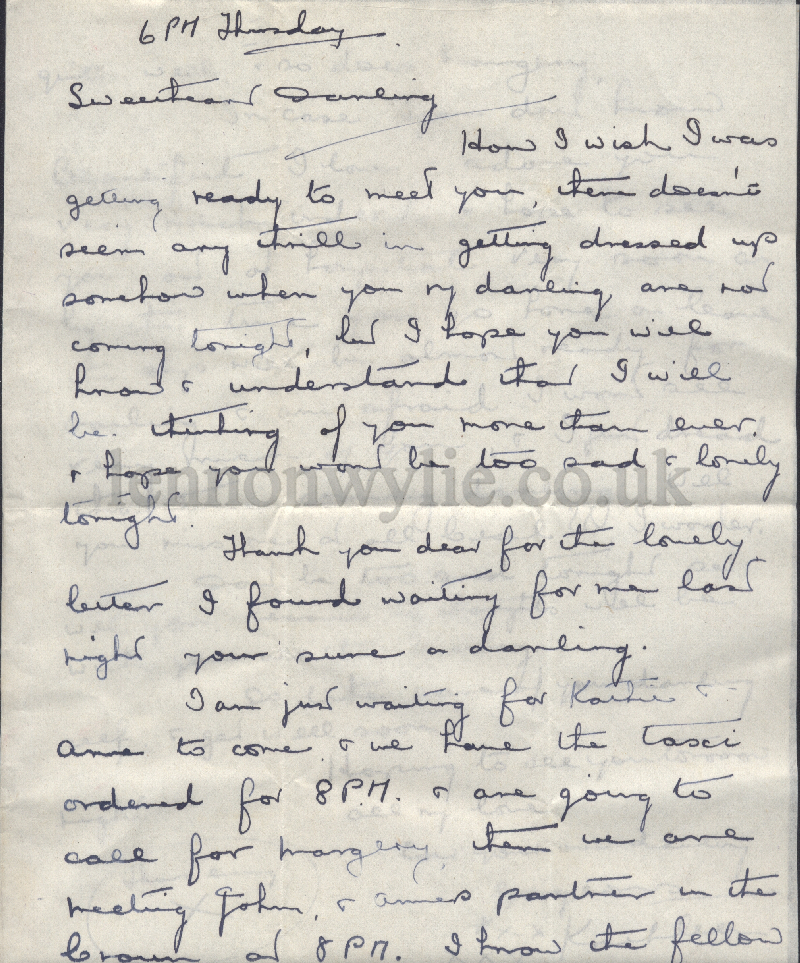 6 PM Thursday
Sweetheart Darling
How I wish I was
getting ready to meet you, there doesn't
seem any thrill in getting dressed up
somehow when you my darling are not
coming tonight, but I hope you will
know & understand that I will
be thinking of you more than ever.
& hope you wont be too sad & lonely
lennonwylie.co.uk
tonight.
Thank you dear for the lovely
letter I found waiting for me last
night your sure a darling.
I am just waiting for Kathie &
Anne to come & we have the taxi
ordered for 8 P.M. & are going to
call for Margery, then we are
meeting John, & Annes partner in the
Crown at 8 P.M. I know the fellow